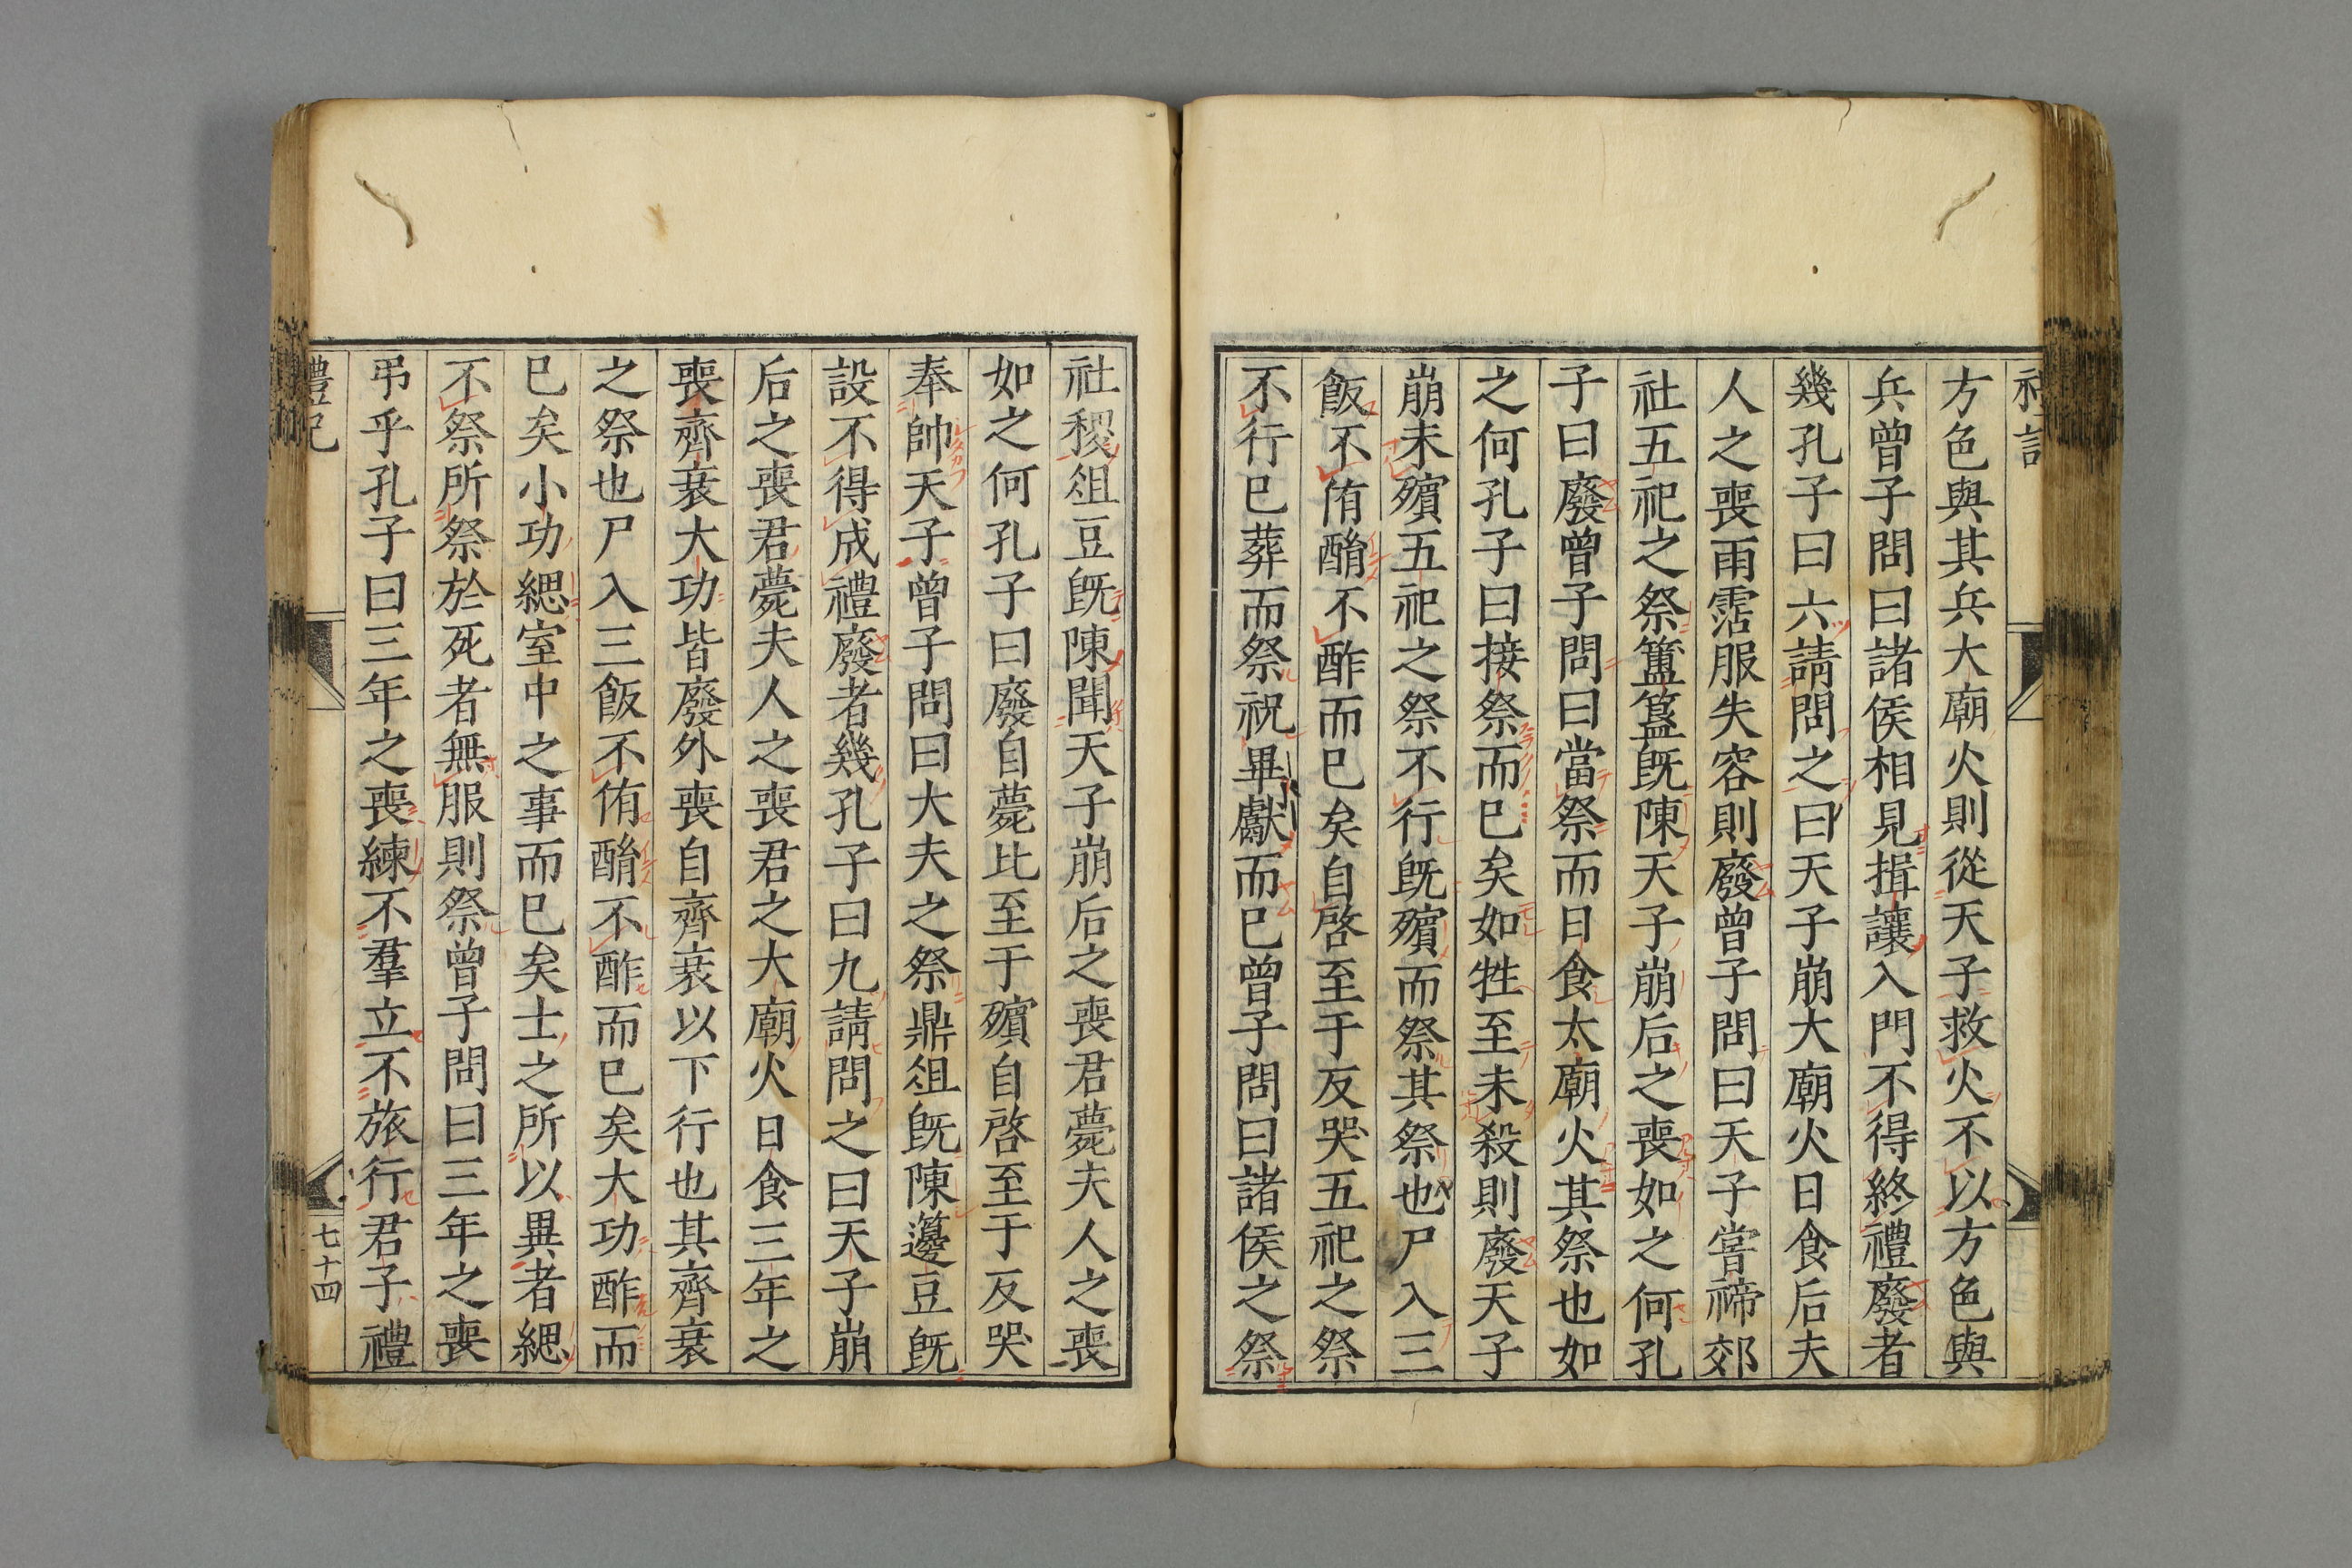 禮記
方色與其兵大廟火則從天子救火不以方色與
兵曾子問曰諸侯相見揖讓入門不得終禮廢者
幾孔子曰六請問之曰天子崩大廟火日食后夫
人之喪雨霑服失容則廢曾子問曰天子嘗禘郊
社五祀之祭簠簋旣陳天子崩后之喪如之何孔
子曰廢曾子問曰當祭而日食太廟火其祭也如
之何孔子曰接祭而已矣如牲至未殺則廢天子
崩未殯五祀之祭不行旣殯而祭其祭也尸入三
飯不侑酳不酢而已矣自啓至于反哭五祀之祭
不行已葬而祭祝畢獻而已曾子問曰諸侯之祭
社稷俎豆旣陳聞天子崩后之喪君薨夫人之喪
如之何孔子曰廢自薨比至于殯自啓至于反哭
奉帥天子曾子問曰大夫之祭鼎俎旣陳籩豆旣
設不得成禮廢者幾孔子曰九請問之曰天子崩
后之喪君薨夫人之喪君之大廟火日食三年之
喪齊衰大功皆廢外喪自齊衰以下行也其齊衰
之祭也尸入三飯不侑酳不酢而已矣大功酢而
已矣小功緦室中之事而已矣士之所以異者緦
不祭所祭於死者無服則祭曾子問曰三年之喪
弔乎孔子曰三年之喪練不羣立不旅行君子禮
禮記
七十四